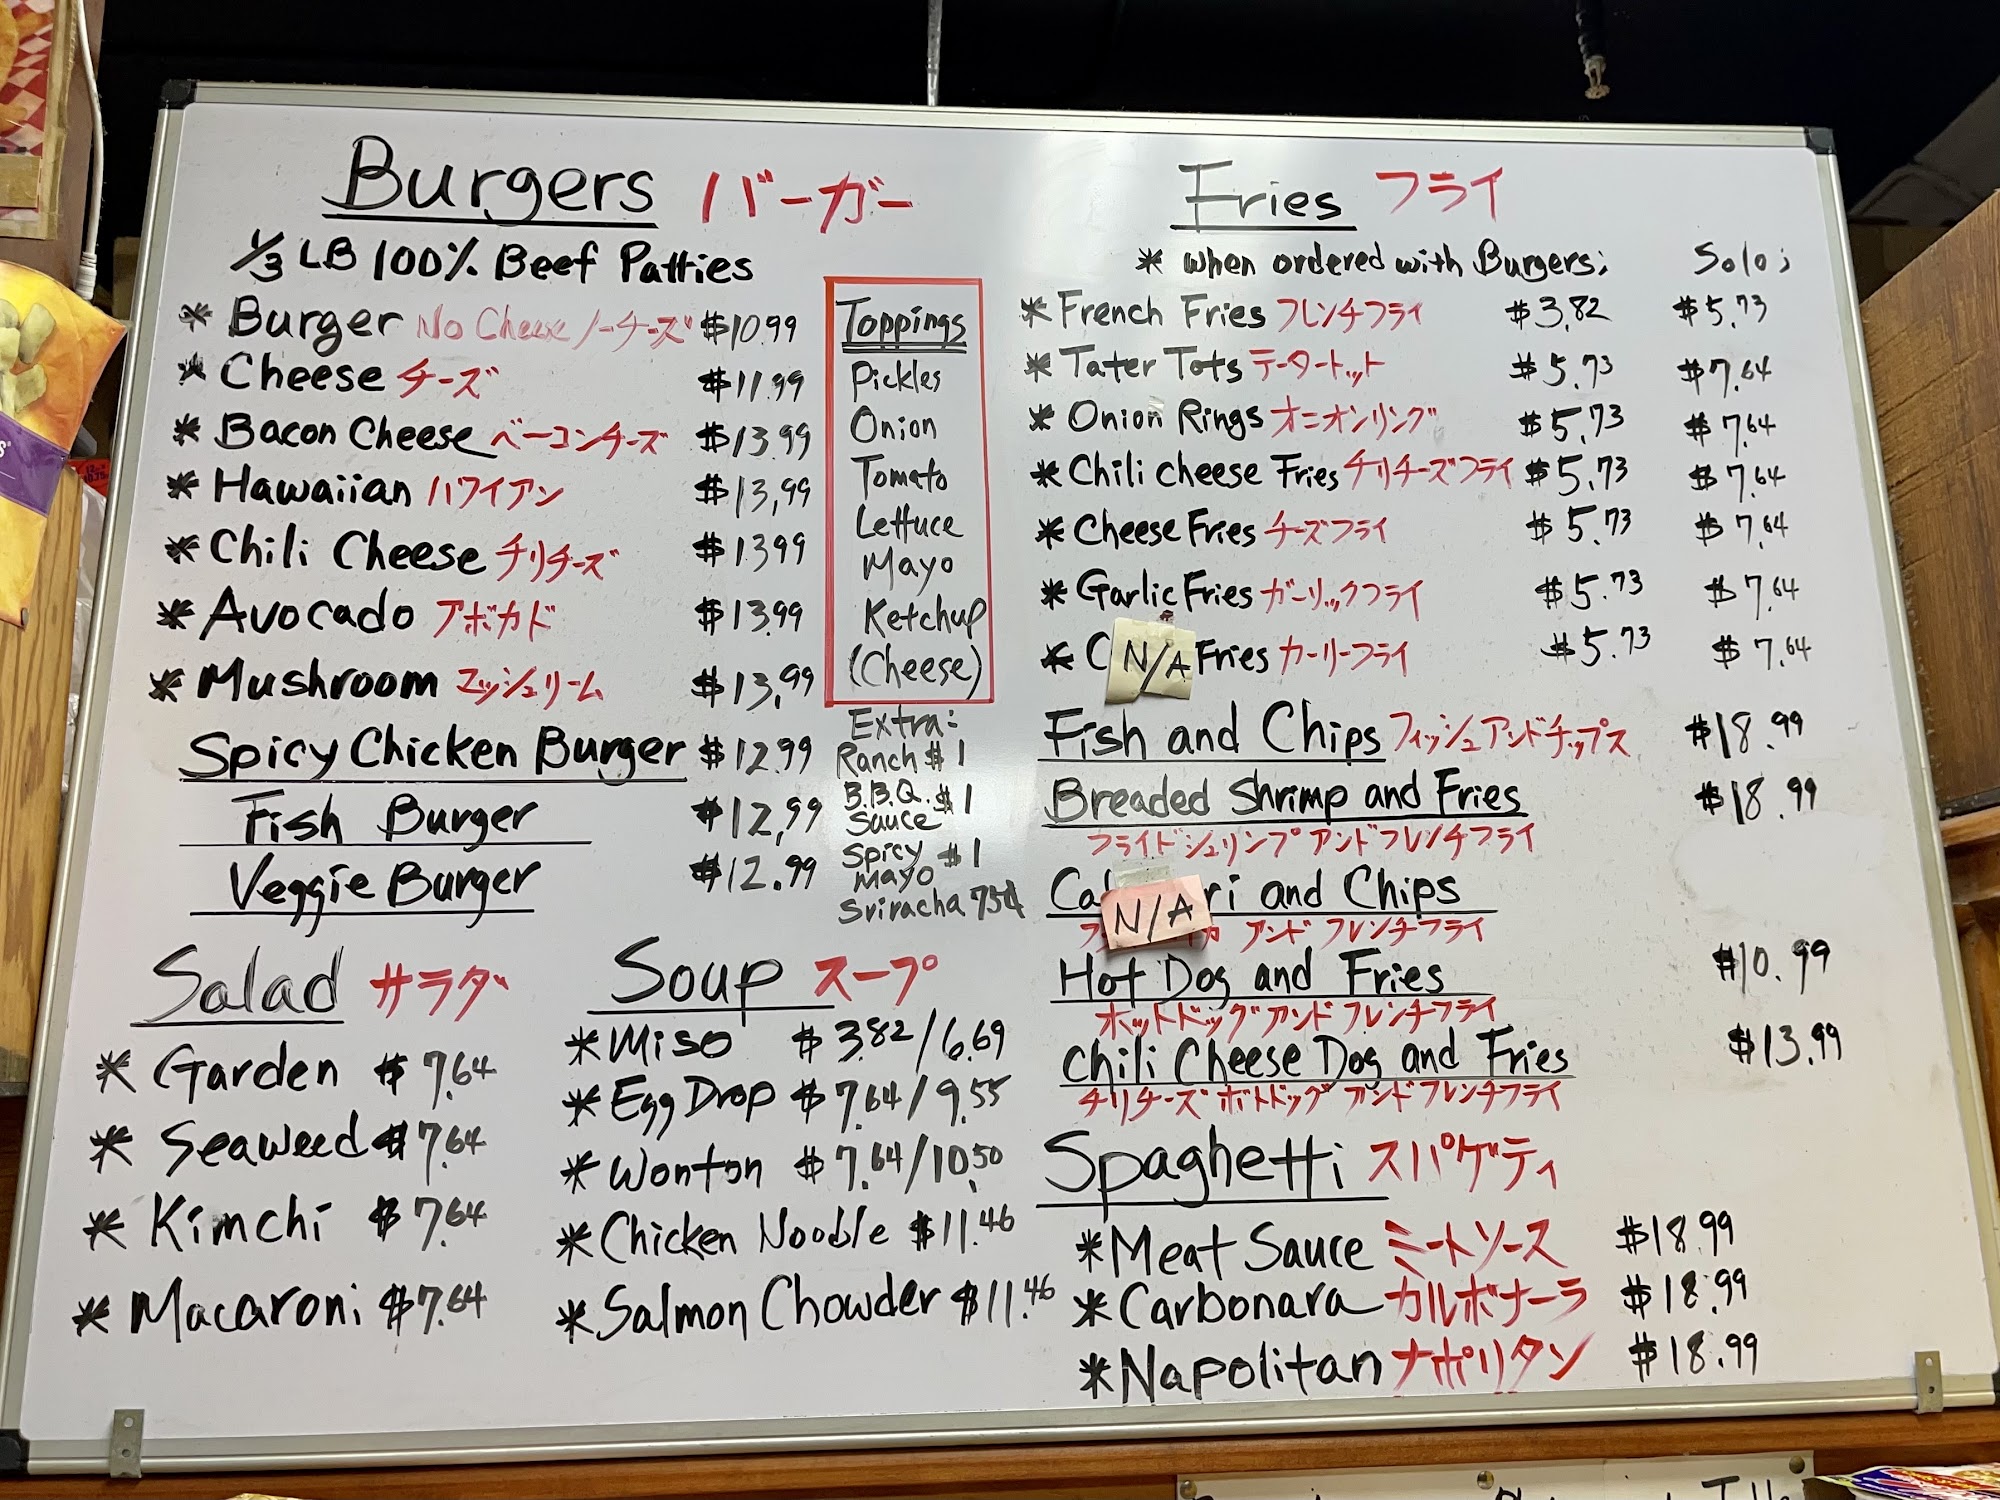 Burgers バーガー
1/3 LB 100% Beef Patties
* Burger No Cheese ノーチーズ $10.99
* Cheese チーズ $11.99
* Bacon Cheese ベーコンチーズ $13.99
* Hawaiian ハワイアン $13,99
* Chili Cheese チリチーズ $1399
* Avocado アボカド $13.99
* Mushroom マッシュリーム $13,99
Spicy Chicken Burger $12.99
Fish Burger $12,99
Veggie Burger $12.99
Toppings
Pickles
Onion
Tomato
Lettuce
Mayo
Ketchup
(Cheese)
Extra:
Ranch $1
B.B.Q. $1
Sauce
Spicy $1
Mayo
Sriracha 75¢
Salad サラダ
* Garden $7.64
* Seaweed $7.64
* Kimchi $7.64
* Macaroni $7.64
Soup スープ
* Miso $3.82/6.69
* Egg Drop $7.64/9.55
* Wonton $7.64/10.50
* Chicken Noodle $11.46
* Salmon Chowder $11.46
Fries フライ
* when ordered with Burgers; Solo;
* French Fries フレンチフライ $3.82 $5.73
* Tater Tots テータートット $5.73 $7.64
* Onion Rings オニオンリング $5.73 $7.64
* Chili cheese Fries チリチーズフライ $5.73 $7.64
* Cheese Fries チーズフライ $5.73 $7.64
* Garlic Fries ガーリックフライ $5.73 $7.64
* C N/A Fries カーリーフライ $5.73 $7.64
Fish and Chips フィッシュアンドチップス $18.99
Breaded Shrimp and Fries $18.99
フライドシュリンプアンドフレンチフライ
Ca N/A ri and Chips
アンド フレンチフライ
Hot Dog and Fries $10.99
ホットドッグアンドフレンチフライ
Chili Cheese Dog and Fries $13.99
チリチーズホトドッグアンドフレンチフライ
Spaghetti スパゲティ
* Meat Sauce ミートソース $18.99
* Carbonara カルボナーラ $18.99
* Napolitan ナポリタン $18.99